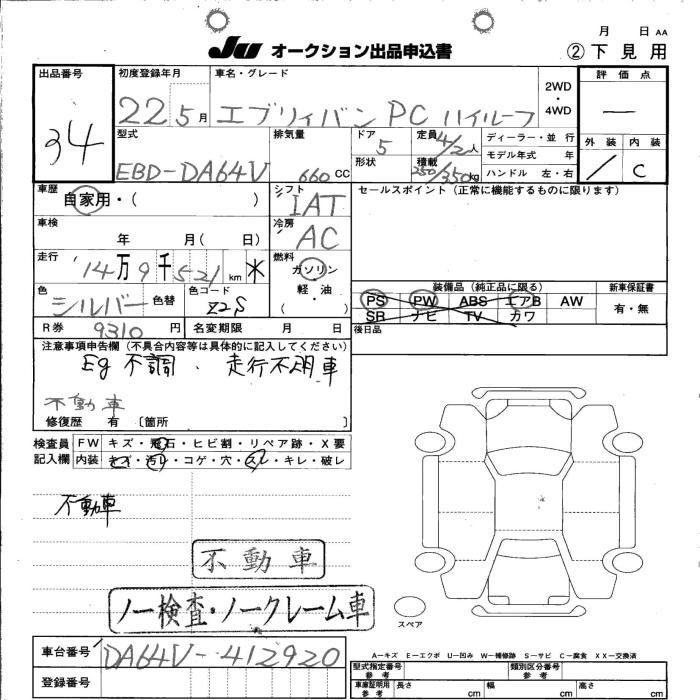 月 日 AA
JU オークション出品申込書 ②下見用
出品番号 34
初度登録年月 22 5月
車名・グレード エブリィバン PC ハイルーフ
2WD・4WD
評価点 —
外装 / 内装 C
型式 EBD-DA64V
排気量 660cc
ドア 5
形状
定員 4/2人
積載 250/350kg
ディーラー・並行
モデル年式 年
ハンドル 左・右
車歴 自家用・( )
シフト IAT
セールスポイント(正常に機能するものに限ります)
車検 年 月( 日)
冷房 AC
走行 14万9千521km ＊
燃料 ガソリン
軽・油
( )
色 シルバー 色替
色コード Z2S
装備品(純正品に限る) 新車保証書
PS PW ABS エアB AW
SR ナビ TV カワ
有・無
R券 9310円 名変期限 月 日
後日品
注意事項申告欄(不具合内容等は具体的に記入してください)
Eg不調、走行不明車
不動車
修復歴 有〔箇所 〕
検査員記入欄
FW キズ・飛石・ヒビ割・リペア跡・X要
内装 キズ・汚レ・コゲ・穴・スレ・キレ・破レ
不動車
不動車
ノー検査・ノークレーム車
スペア
A－キズ E－エクボ U－凹み W－補修跡 S－サビ C－腐食 XX－交換済
車台番号 DA64V-412920
登録番号
型式指定番号 参考 類別区分番号 参考
車庫証明用 参考 長さ cm 幅 cm 高さ cm